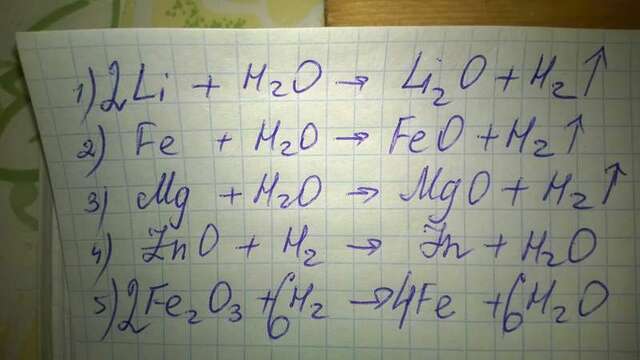 1) 2Li + H₂O → Li₂O + H₂↑
2) Fe + H₂O → FeO + H₂↑
3) Mg + H₂O → MgO + H₂↑
4) ZnO + H₂ → Zn + H₂O
5) 2Fe₂O₃ + 6H₂ → 4Fe + 6H₂O